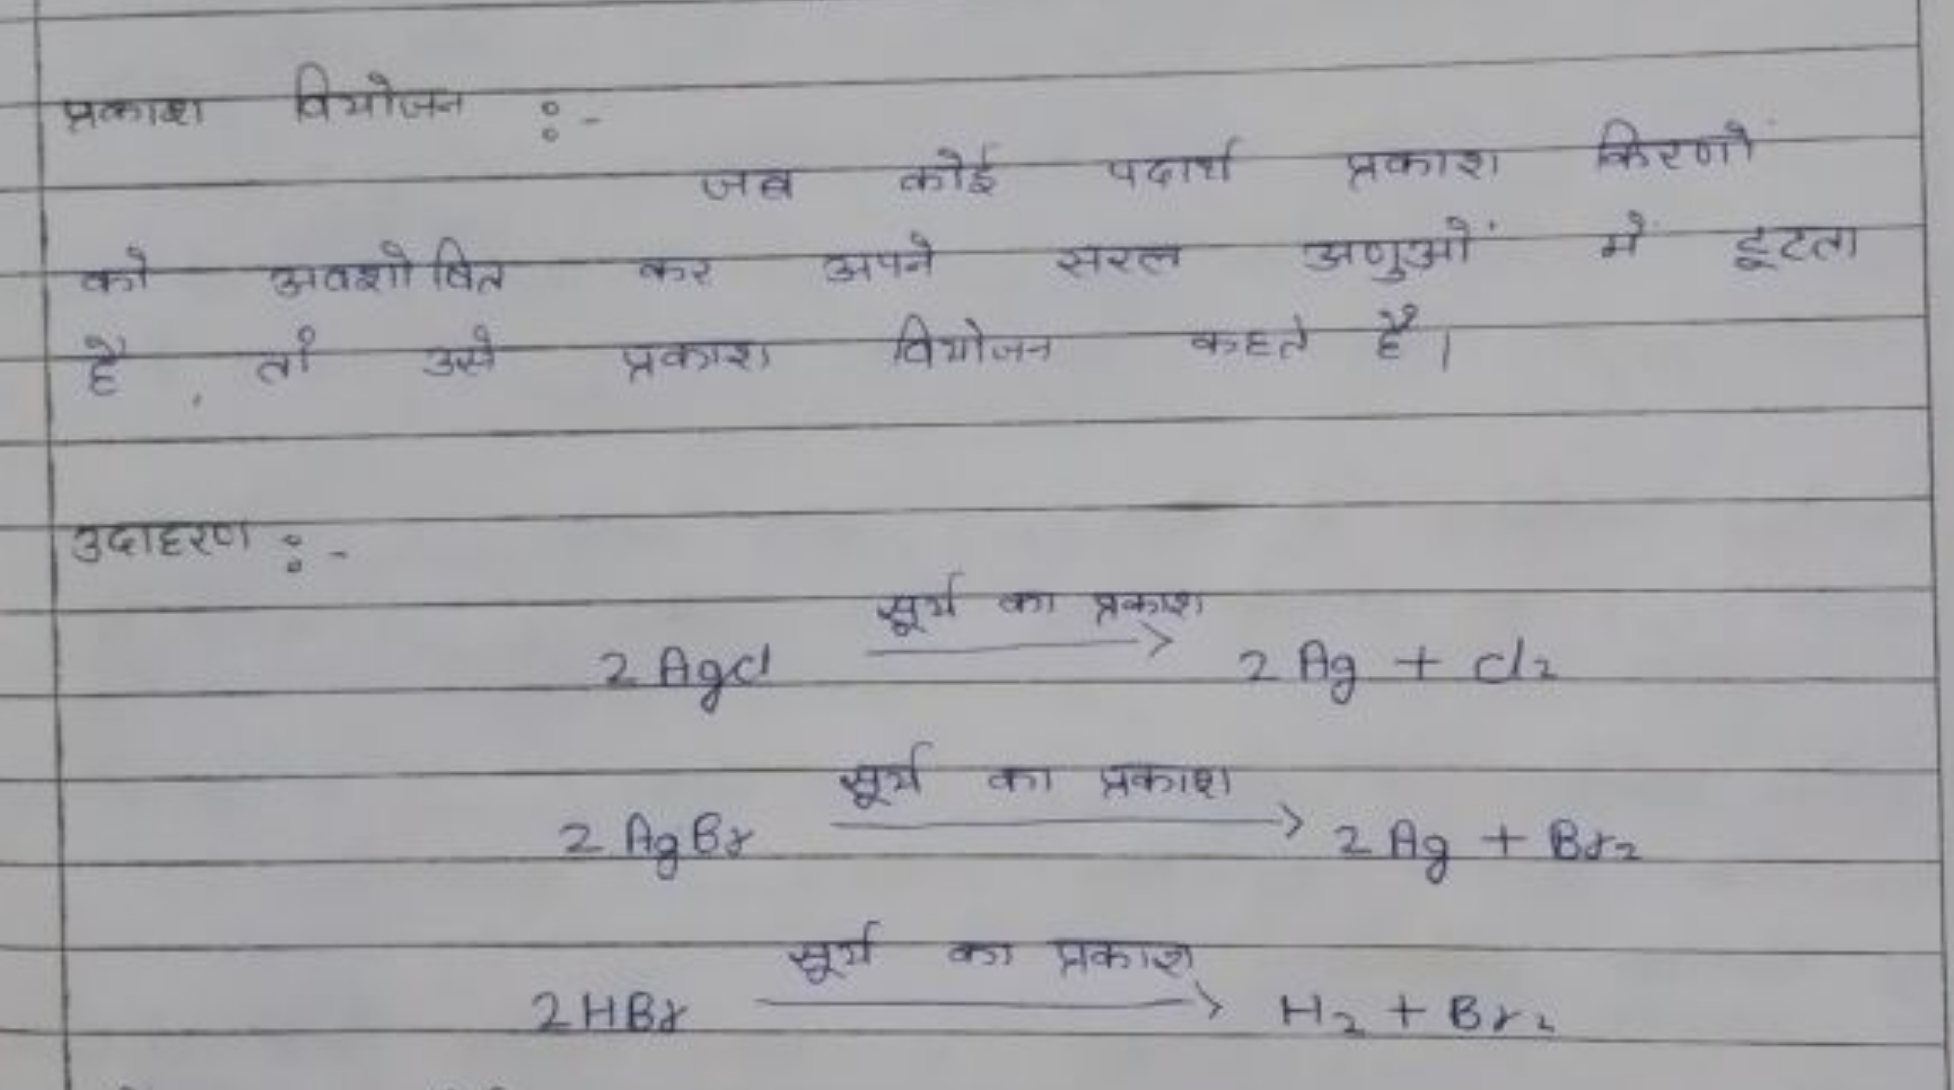 प्रकाश वियोजन :-
जब कोई पदार्थ प्रकाश किरणों
को अवशोषित कर अपने सरल अणुओं में टूटता
है, तो उसे प्रकाश वियोजन कहते है।
उदाहरण :-
सूर्य का प्रकाश
2 AgCl ⟶ 2 Ag + Cl₂
सूर्य का प्रकाश
2 AgBr ⟶ 2 Ag + Br₂
सूर्य का प्रकाश
2HBr ⟶ H₂ + Br₂